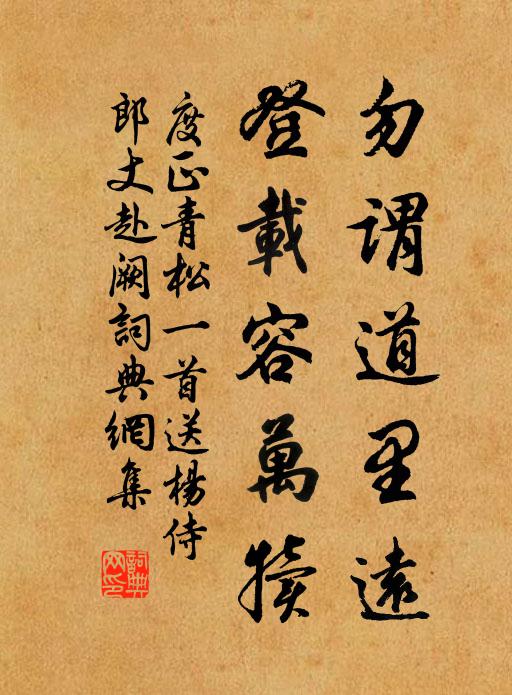 勿謂道里遠
登載容萬犢
度正青松一首送楊侍
郎丈赴闕詞典網集
詞典
网印